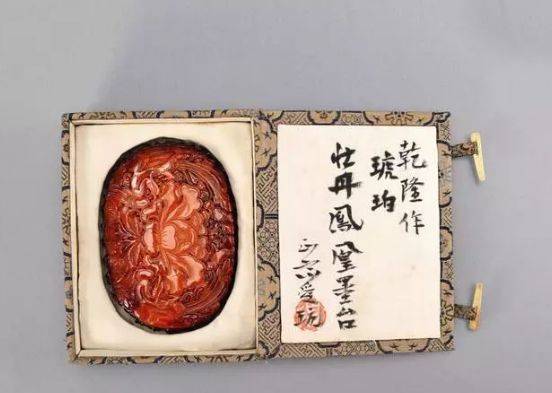 乾隆作
琥珀
牡丹鳳凰墨台
愛玩